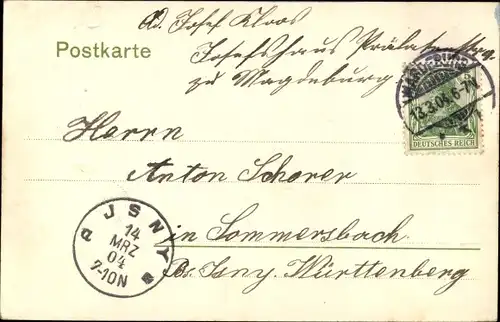 Ad. Josef Kloos
Postkarte
Josefshaus Prälatenberg.
zu Magdeburg
MAGDEBURG
13.3.04. 6-7N.
DEUTSCHES REICH
Herrn
Anton Schorer
in Sommersbach
Bs. Isny. Württenberg
JSNY
14
MRZ
04
7-10N